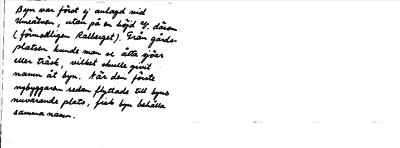 Byn var först ej anlagd vid
Umeälven, utan på en höjd V. därom
(förmodligen Kalberget). Från gårds-
platsen kunde man se åtta sjöar
eller träsk, vilket skulle givit
namn åt byn. När den förste
nybyggaren sedan flyttade till byns
nuvarande plats, fick byn behålla
samma namn.